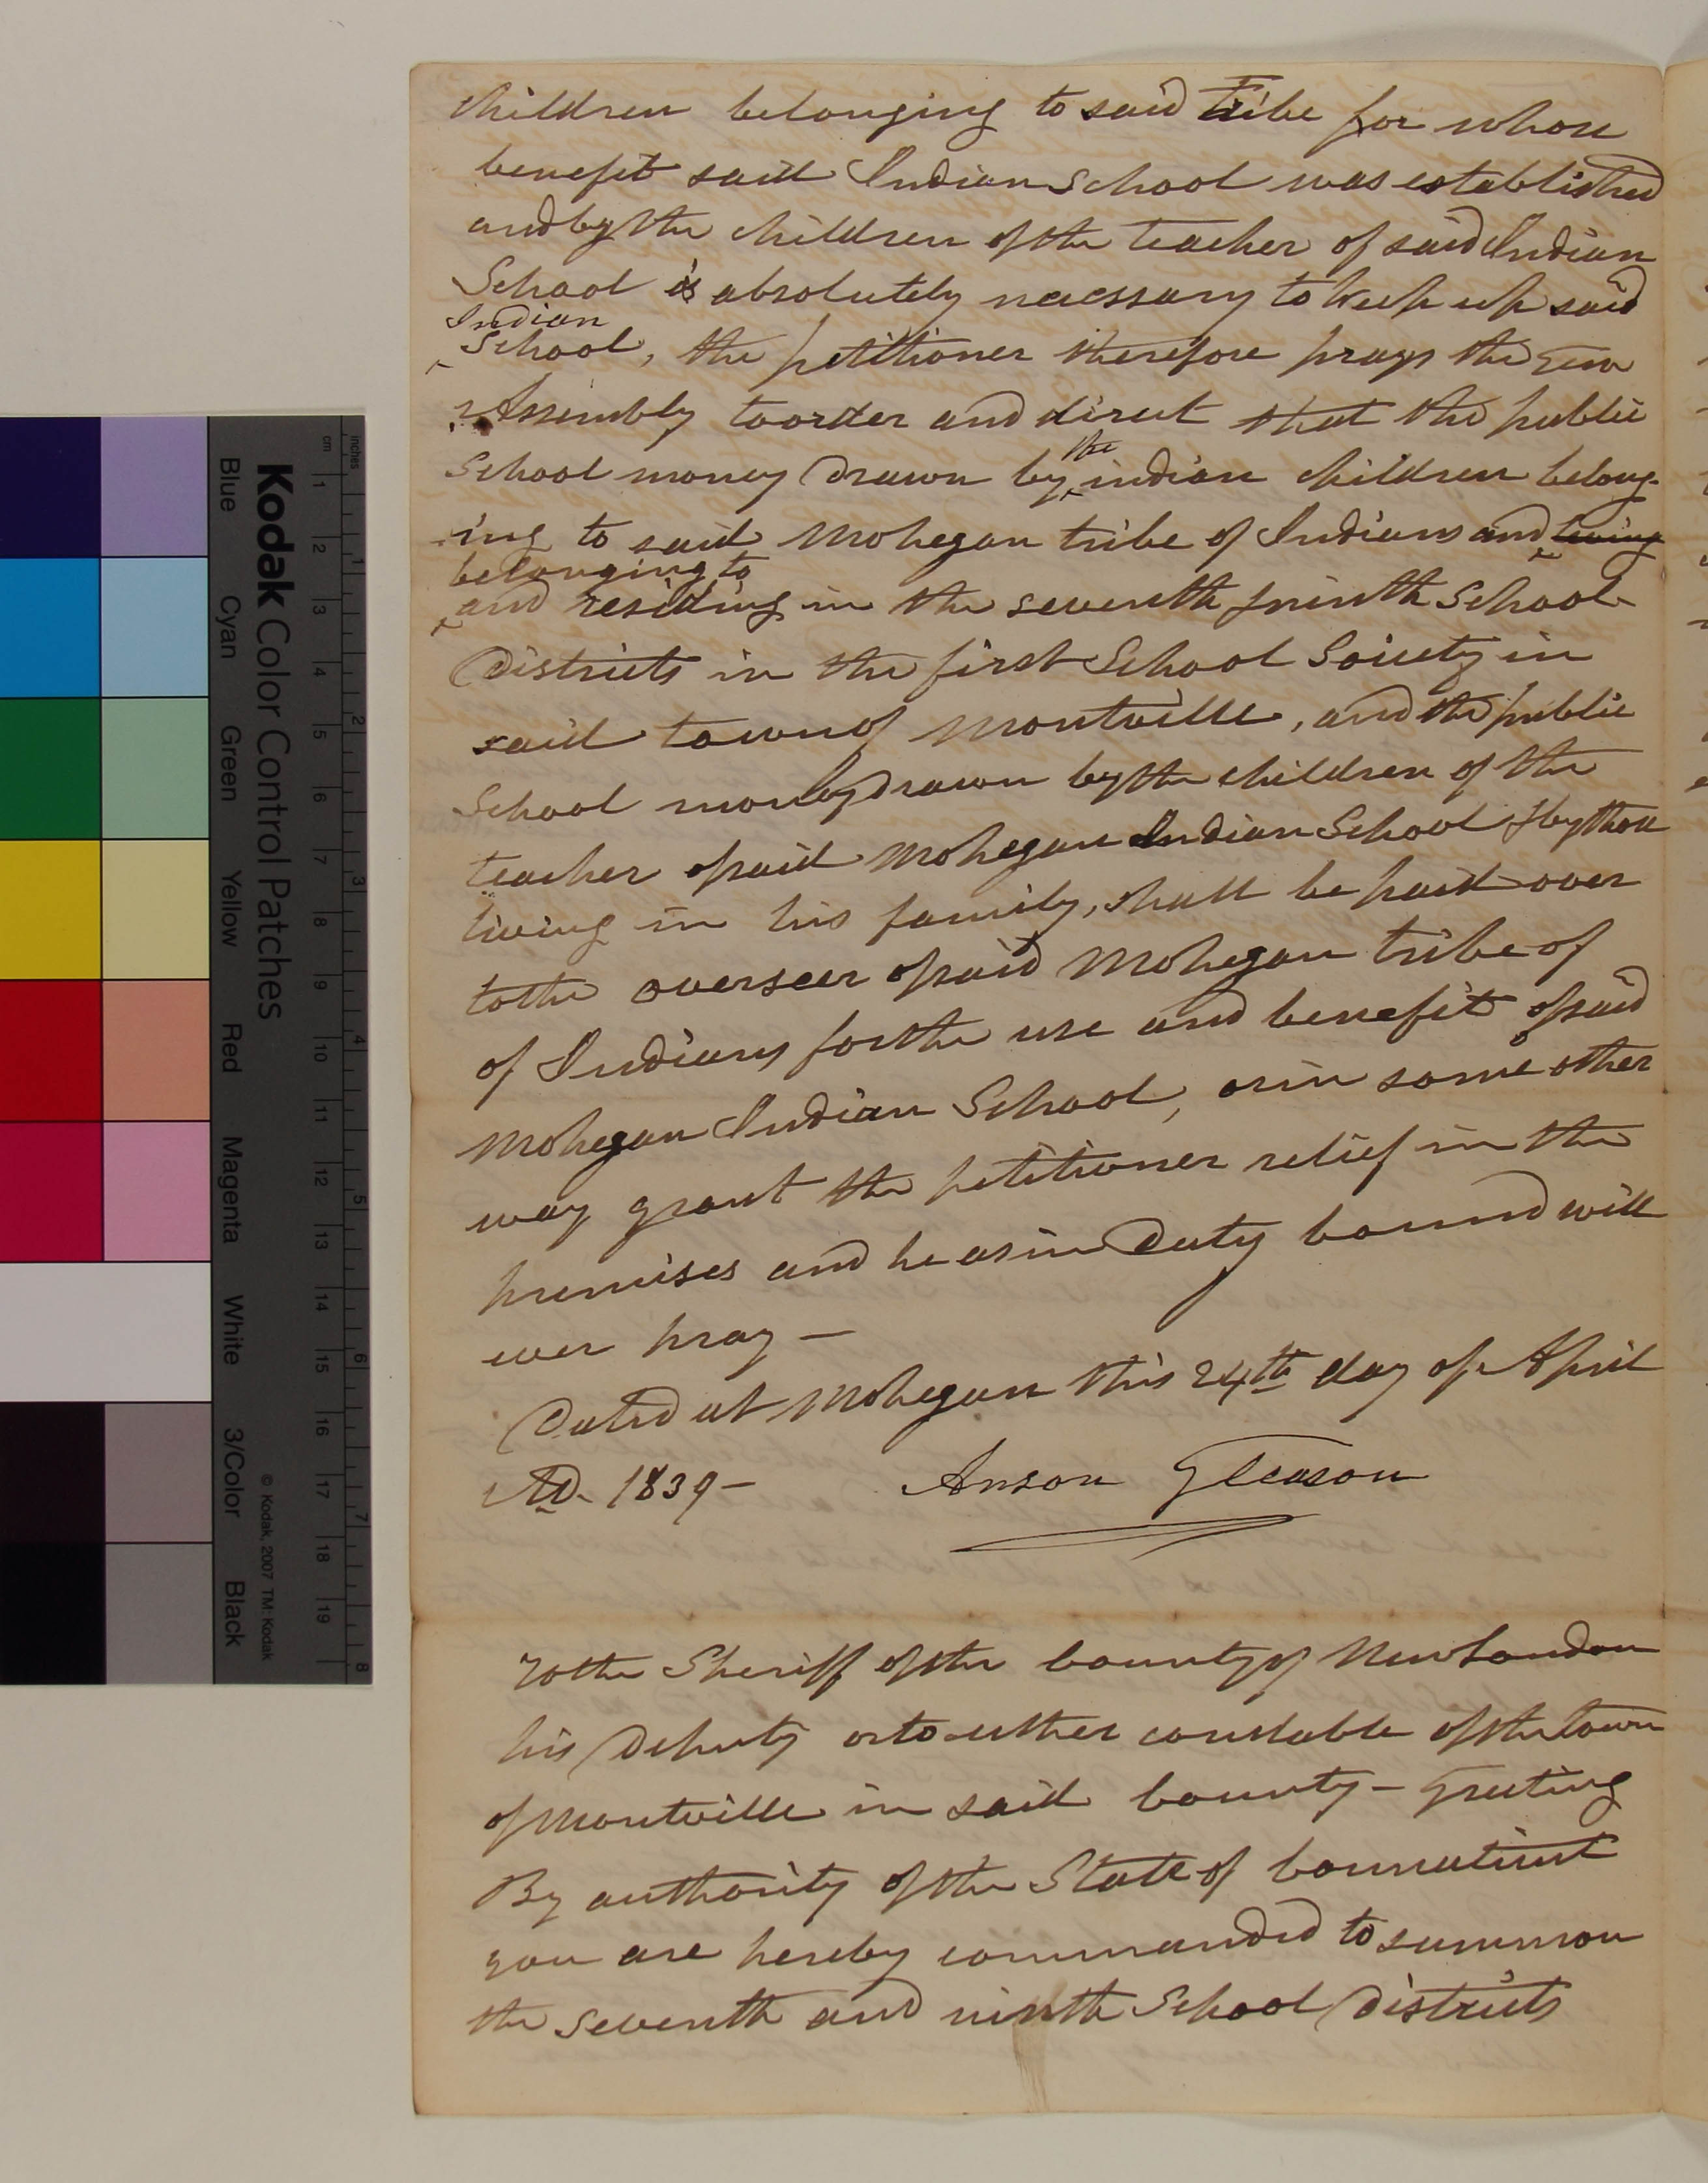 children belonging to said Tribe for whose
benefit said Indian School was established
and by the children of the teacher of said Indian
School is absolutely necessary to keep up said
Indian
School, the petitioner therefore prays the Gen
Assembly to order and direct that the public
the
School money drawn by indian children belong-
ing to said Mohegan tribe of Indians and living
belonging to
and residing in the seventh & ninth School
Districts in the first School Society in
said town of Montville, and the public
School money drawn by the children of the
teacher of said Mohegan Indian School & by those
living in his family, shall be paid over
to the overseer of said Mohegan tribe of
of Indians for the use and benefit of said
Mohegan Indian School, or in some other
way grant the petitioner relief in the
premises and he as in Duty bound will
ever pray —
Dated at Mohegan this 24th day of April
AD. 1839 — Anson Gleason
To the Sheriff of the County of New London
his Deputy or to either constable of the town
of Montville in said County — Greeting
By authority of the State of Connecticut
you are hereby commanded to summon
the seventh and ninth School Districts
Kodak Color Control Patches
Blue Cyan Green Yellow Red Magenta White 3/Color Black
© Kodak, 2007 TM: Kodak
cm 1 2 3 4 5 6 7 8 9 10 11 12 13 14 15 16 17 18 19
inches 1 2 3 4 5 6 7 8